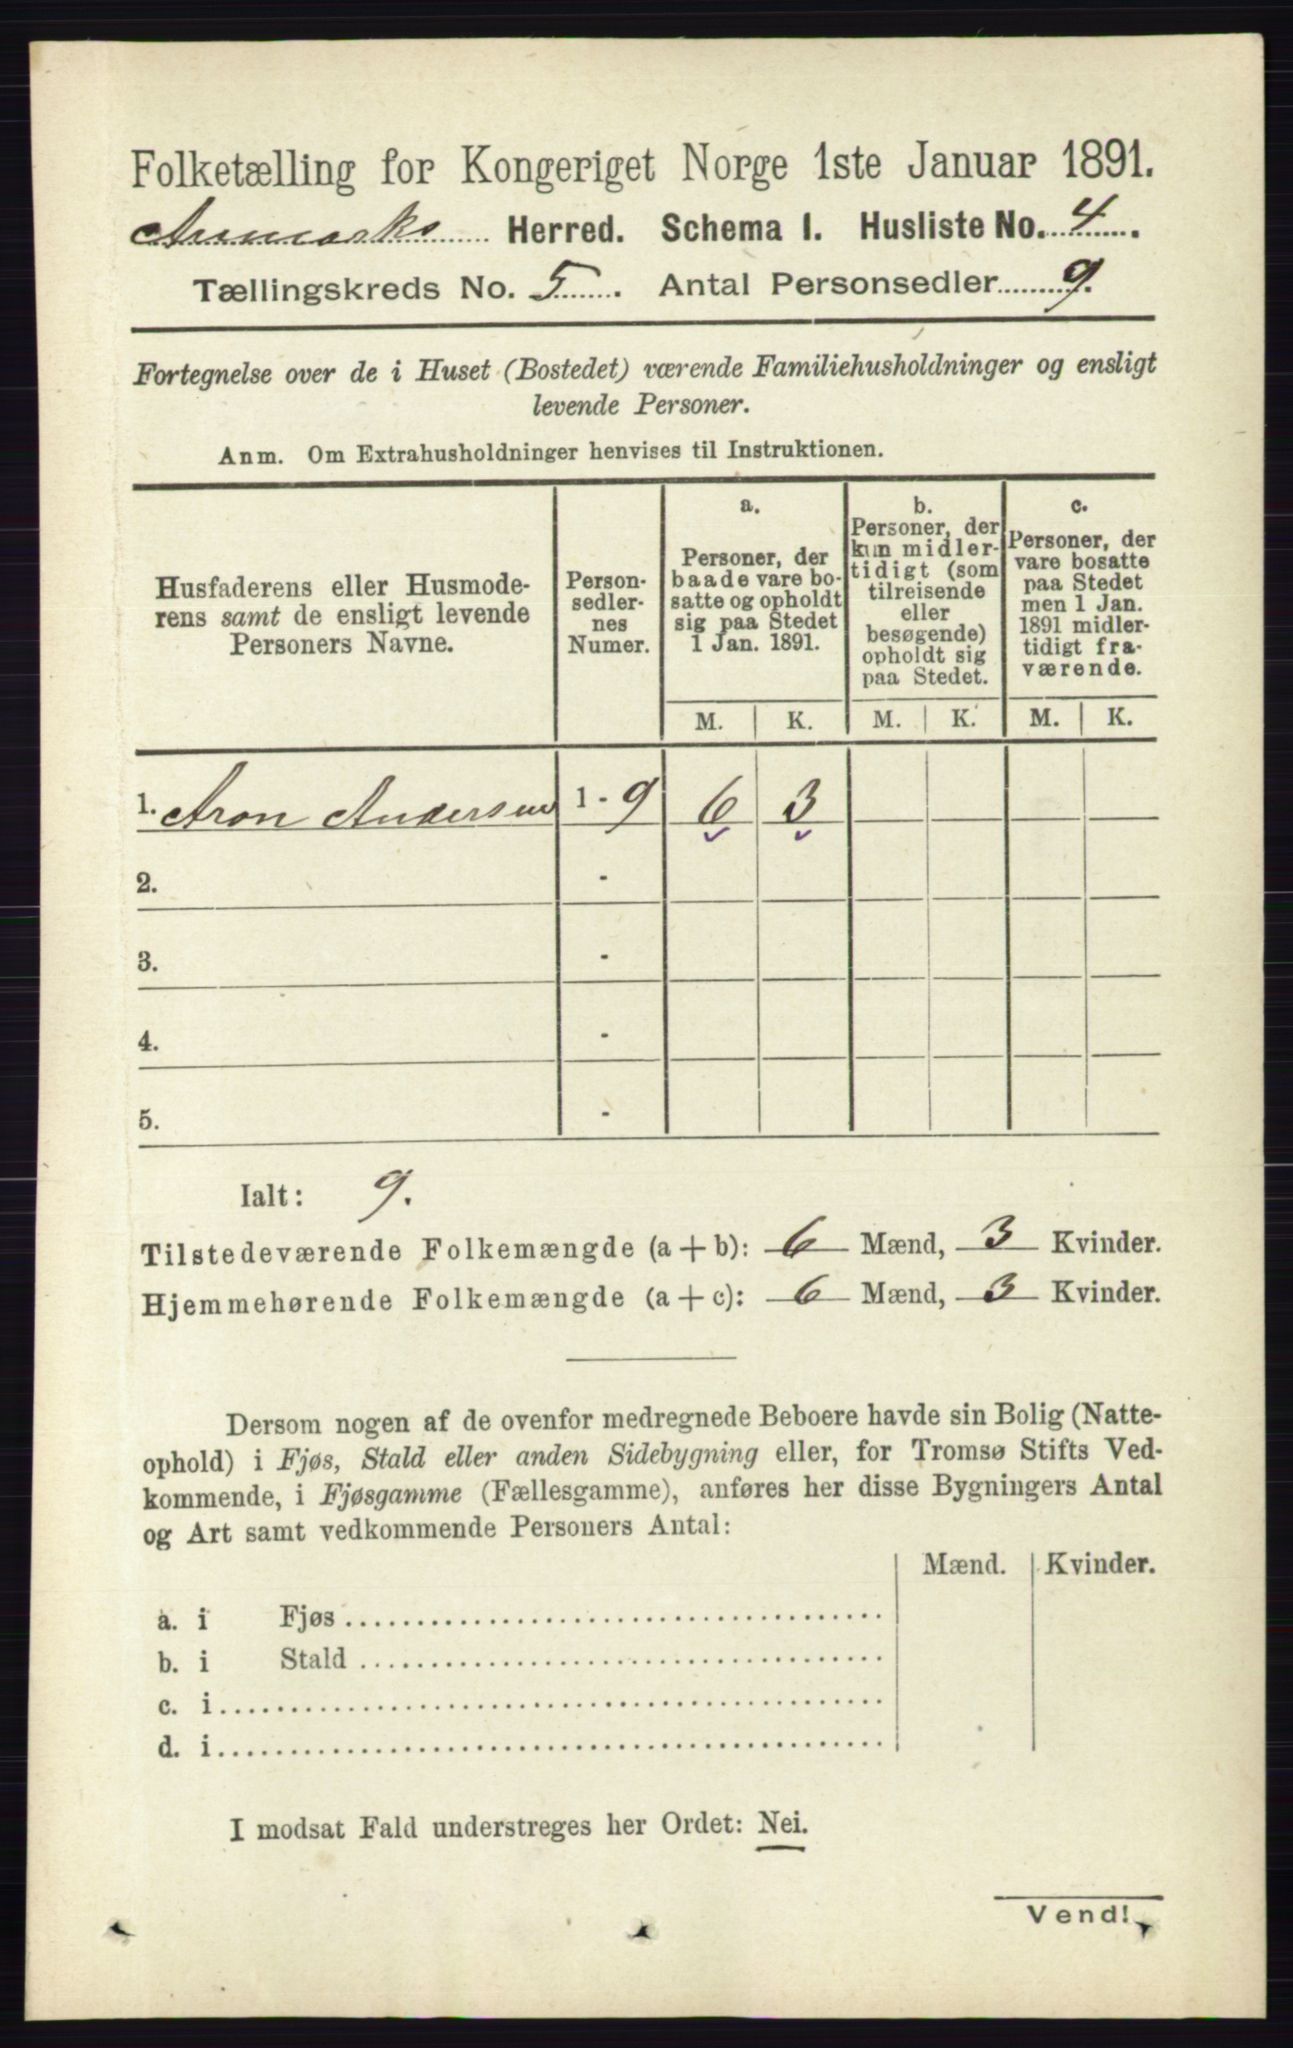 Folketælling for Kongeriget Norge 1ste Januar 1891.
Aremarks Herred. Schema I. Husliste No. 4.
Tællingskreds No. 5. Antal Personsedler 9.
Fortegnelse over de i Huset (Bostedet) værende Familiehusholdninger og ensligt
levende Personer.
Anm. Om Extrahusholdninger henvises til Instruktionen.
Husfaderens eller Husmode-
rens samt de ensligt levende
Personers Navne.
Person-
sedler-
nes
Numer.
a.
Personer, der
baade vare bo-
satte og opholdt
sig paa Stedet
1 Jan. 1891.
b.
Personer, der
kun midler-
tidigt (som
tilreisende
eller
besøgende)
opholdt sig
paa Stedet.
c.
Personer, der
vare bosatte
paa Stedet
men 1 Jan.
1891 midler-
tidigt fra-
værende.
M. K. M. K. M. K.
1. Aron Andersen 1 - 9 6 3
2. -
3. -
4. -
5. -
Ialt: 9.
Tilstedeværende Folkemængde (a + b): 6 Mænd, 3 Kvinder.
Hjemmehørende Folkemængde (a + c): 6 Mænd, 3 Kvinder.
Dersom nogen af de ovenfor medregnede Beboere havde sin Bolig (Natte-
ophold) i Fjøs, Stald eller anden Sidebygning eller, for Tromsø Stifts Ved-
kommende, i Fjøsgamme (Fællesgamme), anføres her disse Bygningers Antal
og Art samt vedkommende Personers Antal:
Mænd. Kvinder.
a. i Fjøs
b. i Stald
c. i
d. i
I modsat Fald understreges her Ordet: Nei.
Vend!